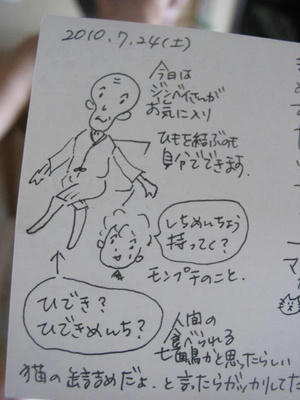 2010.7.24(土)
今日は
ジンベイさんが
お気に入り
ひもを結ぶのも
自分でできます.
しちめんちょう
持ってく?
モンプチのこと.
ひでき?
ひできめんち?
人間の
食べられる
七面鳥かと思ったらしい
猫の缶詰めだよ.と言ったらガッカリしてた
マ